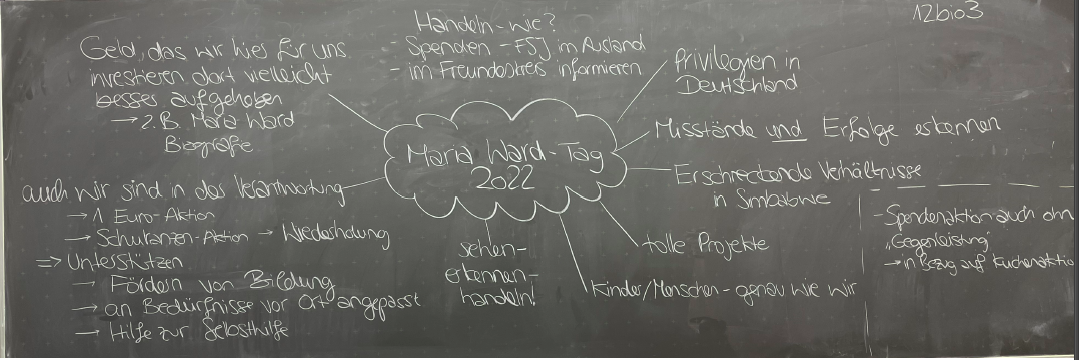 12bio3
Handeln-wie?
- Spenden - FSJ im Ausland
- im Freundeskreis informieren
Geld, das wir hier für uns
investieren dort vielleicht
besser aufgehoben
→ z.B. Maria Ward
Biografie
Privilegien in
Deutschland
Maria Ward-Tag
2022
Misstände und Erfolge erkennen
Erschreckende Verhältnisse
in Simbabwe
auch wir sind in der Verantwortung
→ 1 Euro-Aktion
→ Schulranzen-Aktion → Wiederholung
=> Unterstützen
→ Fördern von Bildung
→ an Bedürfnisse vor Ort angepasst
→ Hilfe zur Selbsthilfe
sehen-
erkennen-
handeln!
tolle Projekte
Kinder/Menschen - genau wie wir
- Spendenaktion auch ohn
„Gegenleistung"
→ in Bezug auf Kuchenaktio